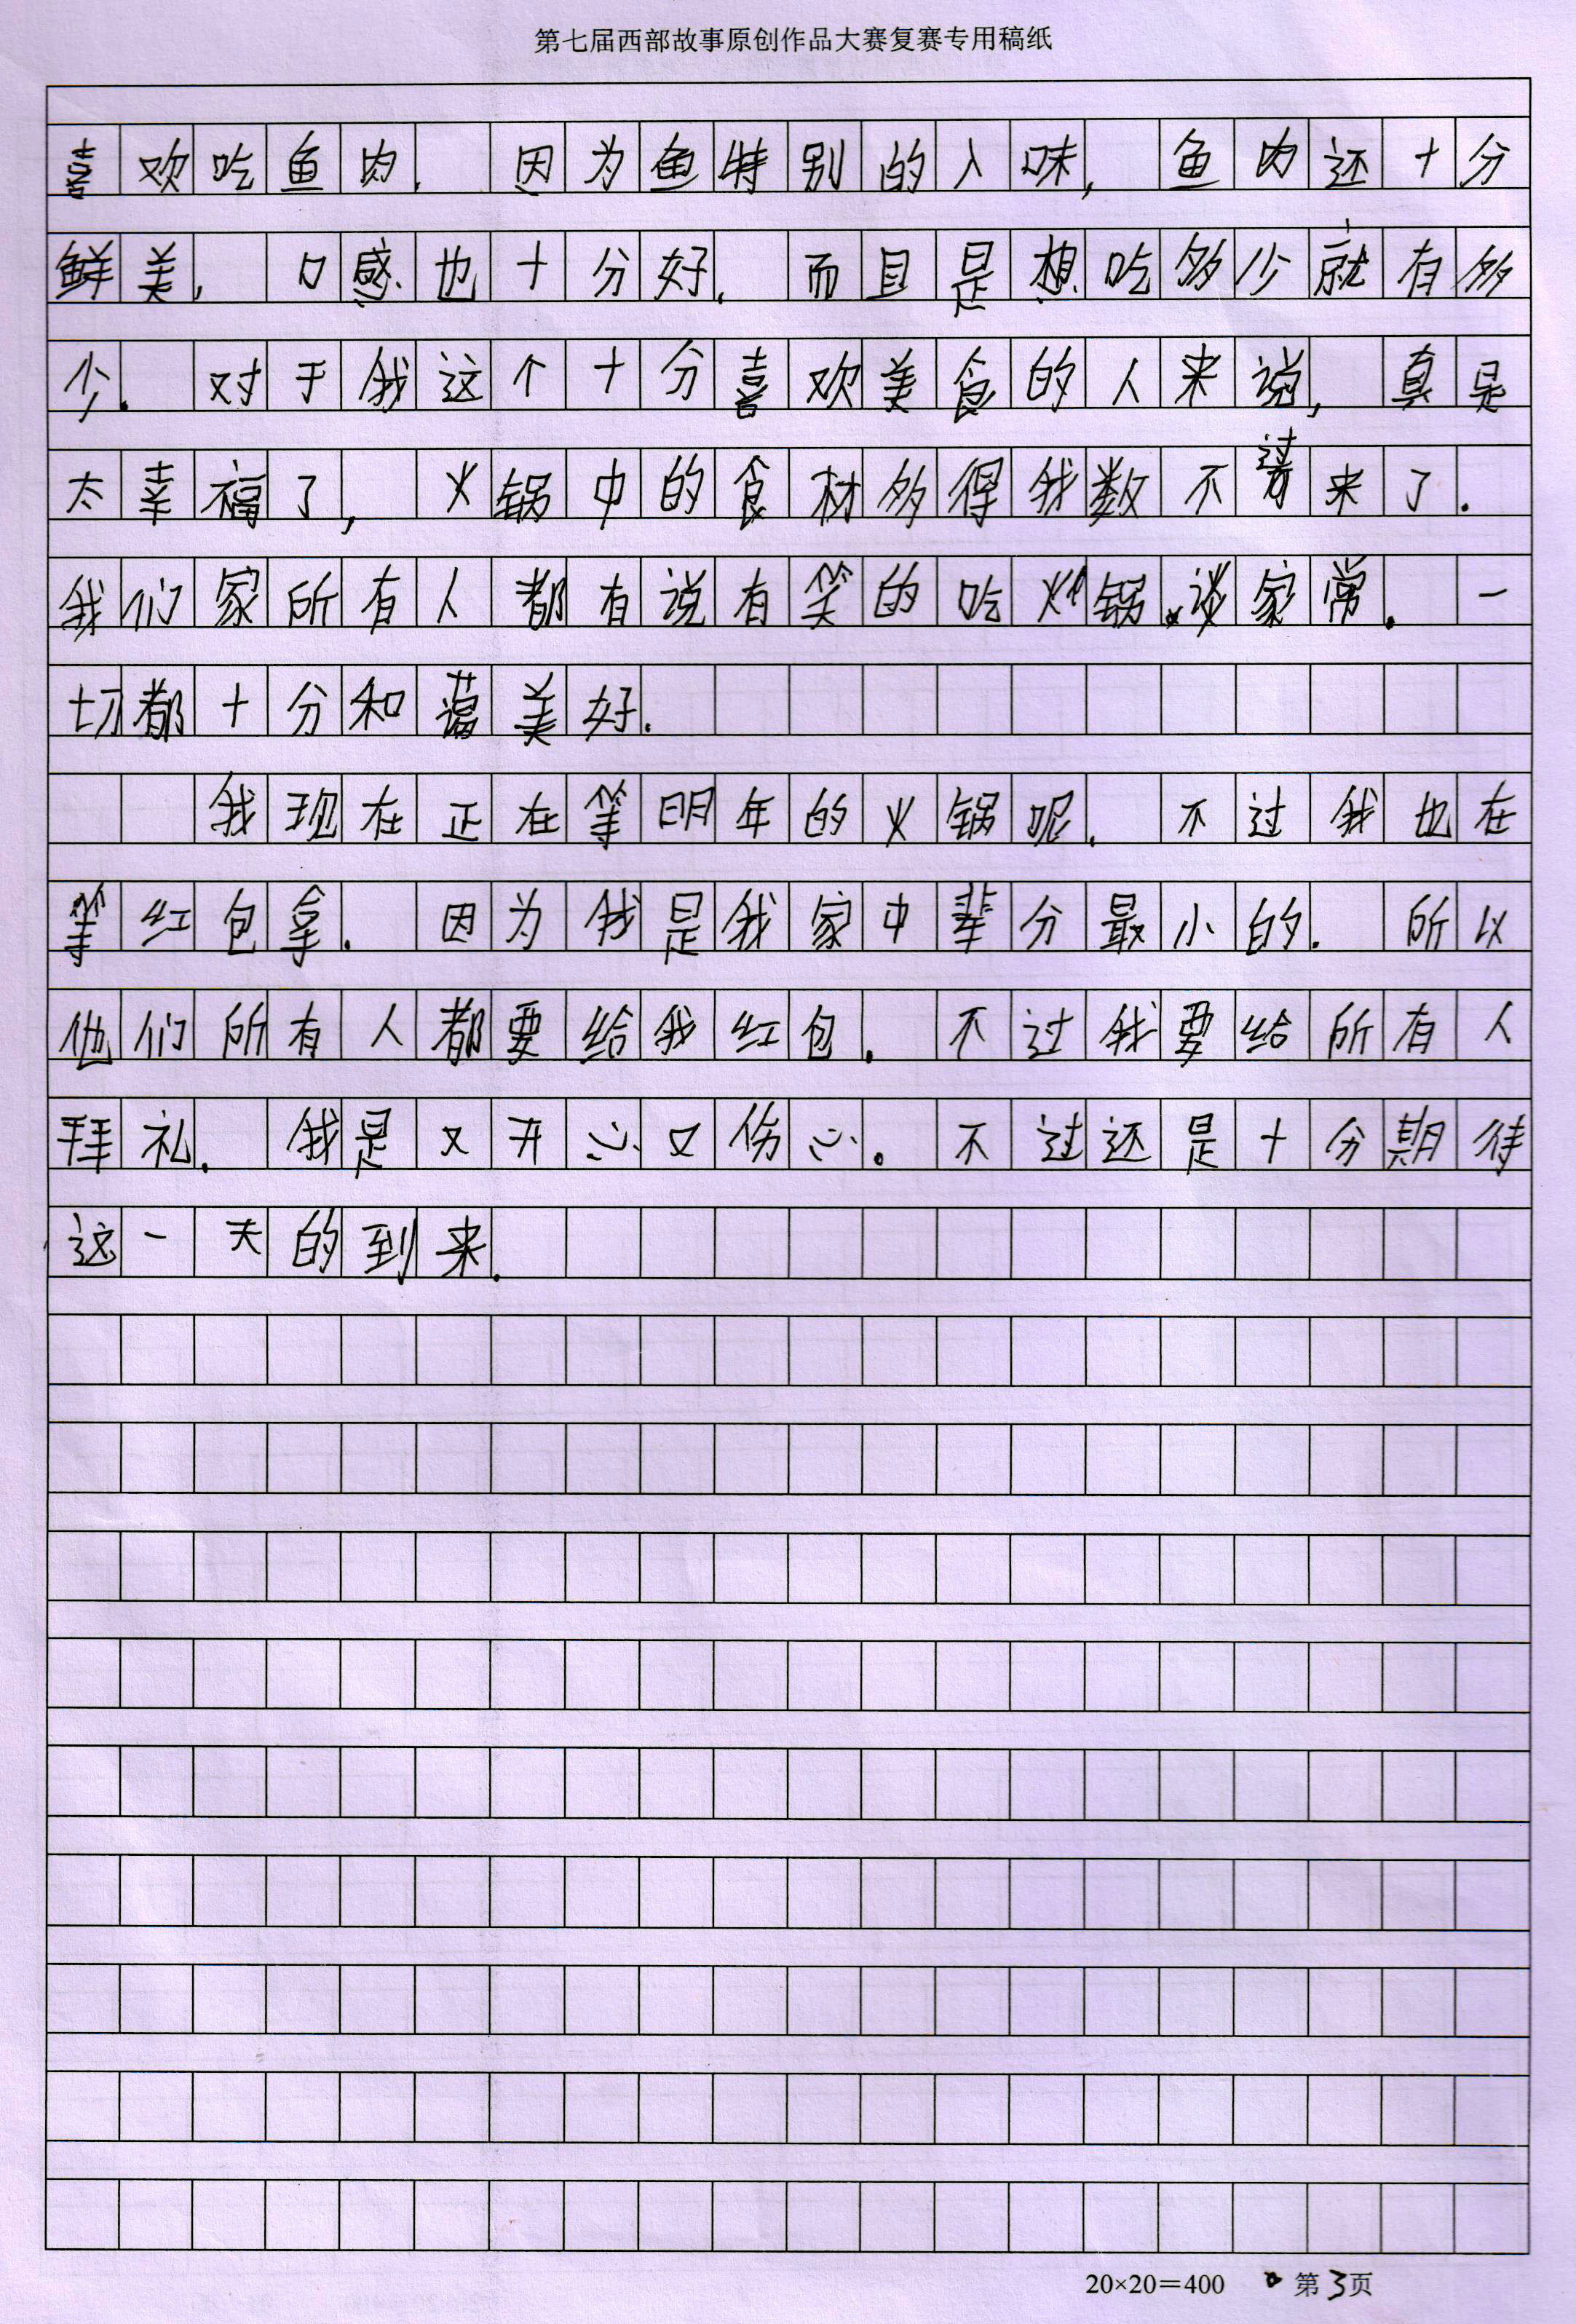 第七届西部故事原创作品大赛复赛专用稿纸
喜欢吃鱼肉.因为鱼特别的入味,鱼肉还十分
鲜美,口感也十分好.而且是想吃多少就有多
少.对于我这个十分喜欢美食的人来说,真是
太幸福了,火锅中的食材多得我数不过来了.
我们家所有人都有说有笑的吃火锅.谈家常.一
切都十分和蔼美好.
我现在正在等明年的火锅呢.不过我也在
等红包拿.因为我是我家中辈分最小的.所以
他们所有人都要给我红包.不过我要给所有人
拜礼.我是又开心又伤心。不过还是十分期待
这一天的到来.
20×20=400 第3页